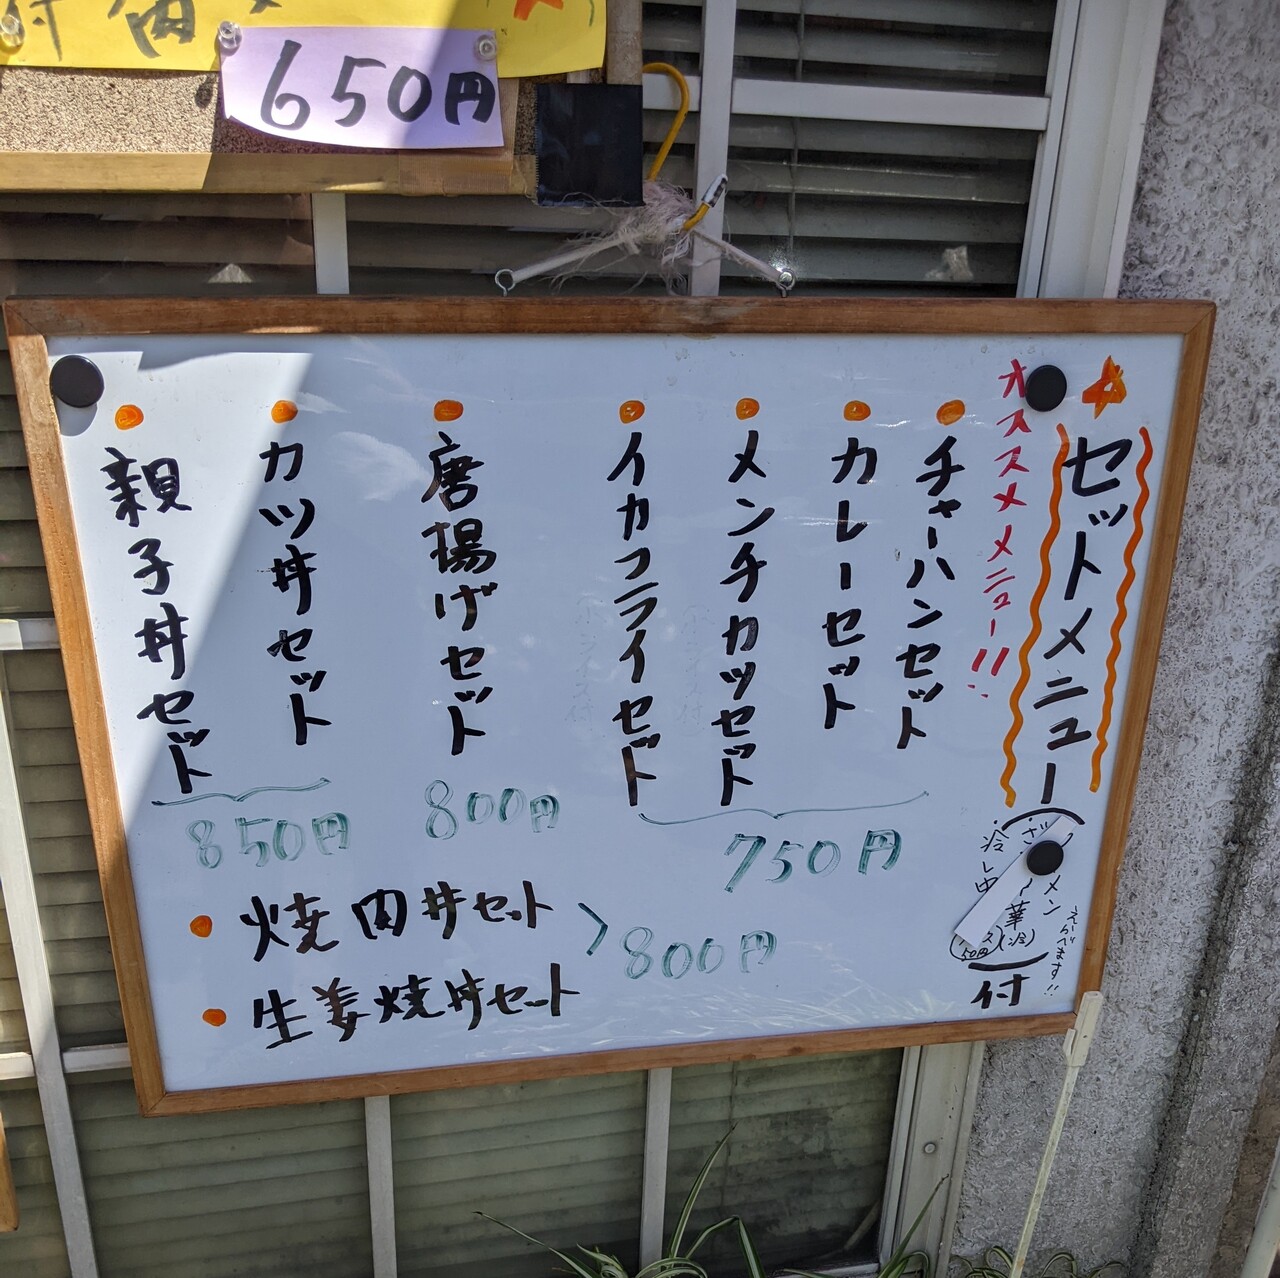 650円
セットメニュー
えらべます!!
付
オススメメニュー!!
チャーハンセット
カレーセット
メンチカツセット
イカフライセット
750円
唐揚げセット
800円
カツ丼セット
親子丼セット
850円
焼肉丼セット
生姜焼丼セット
800円